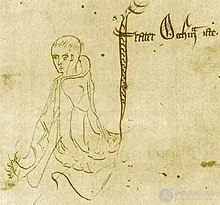 frater Occhā iste.